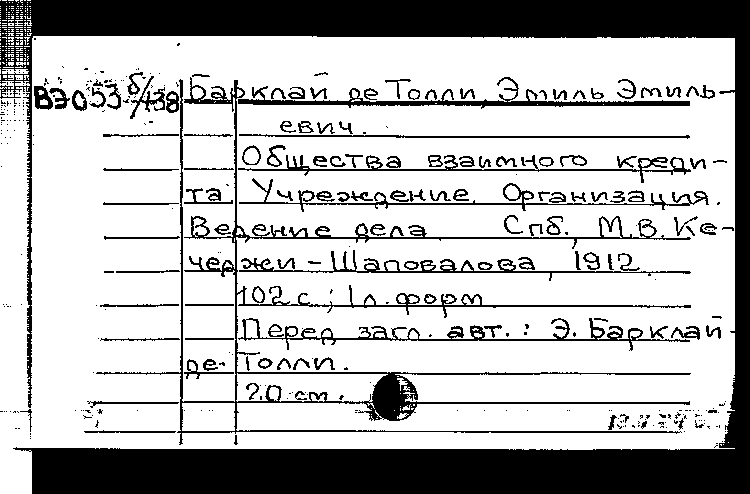 ВЭО53 б/138 Барклай де Толли, Эмиль Эмиль-
евич.
Общества взаимного креди-
та. Учреждение. Организация.
Ведение дела. Спб., М.В. Ке-
черджи-Шаповалова, 1912.
102 с.; 1 л. форм
Перед загл. авт.: Э. Барклай-
де-Толли.
20 см.